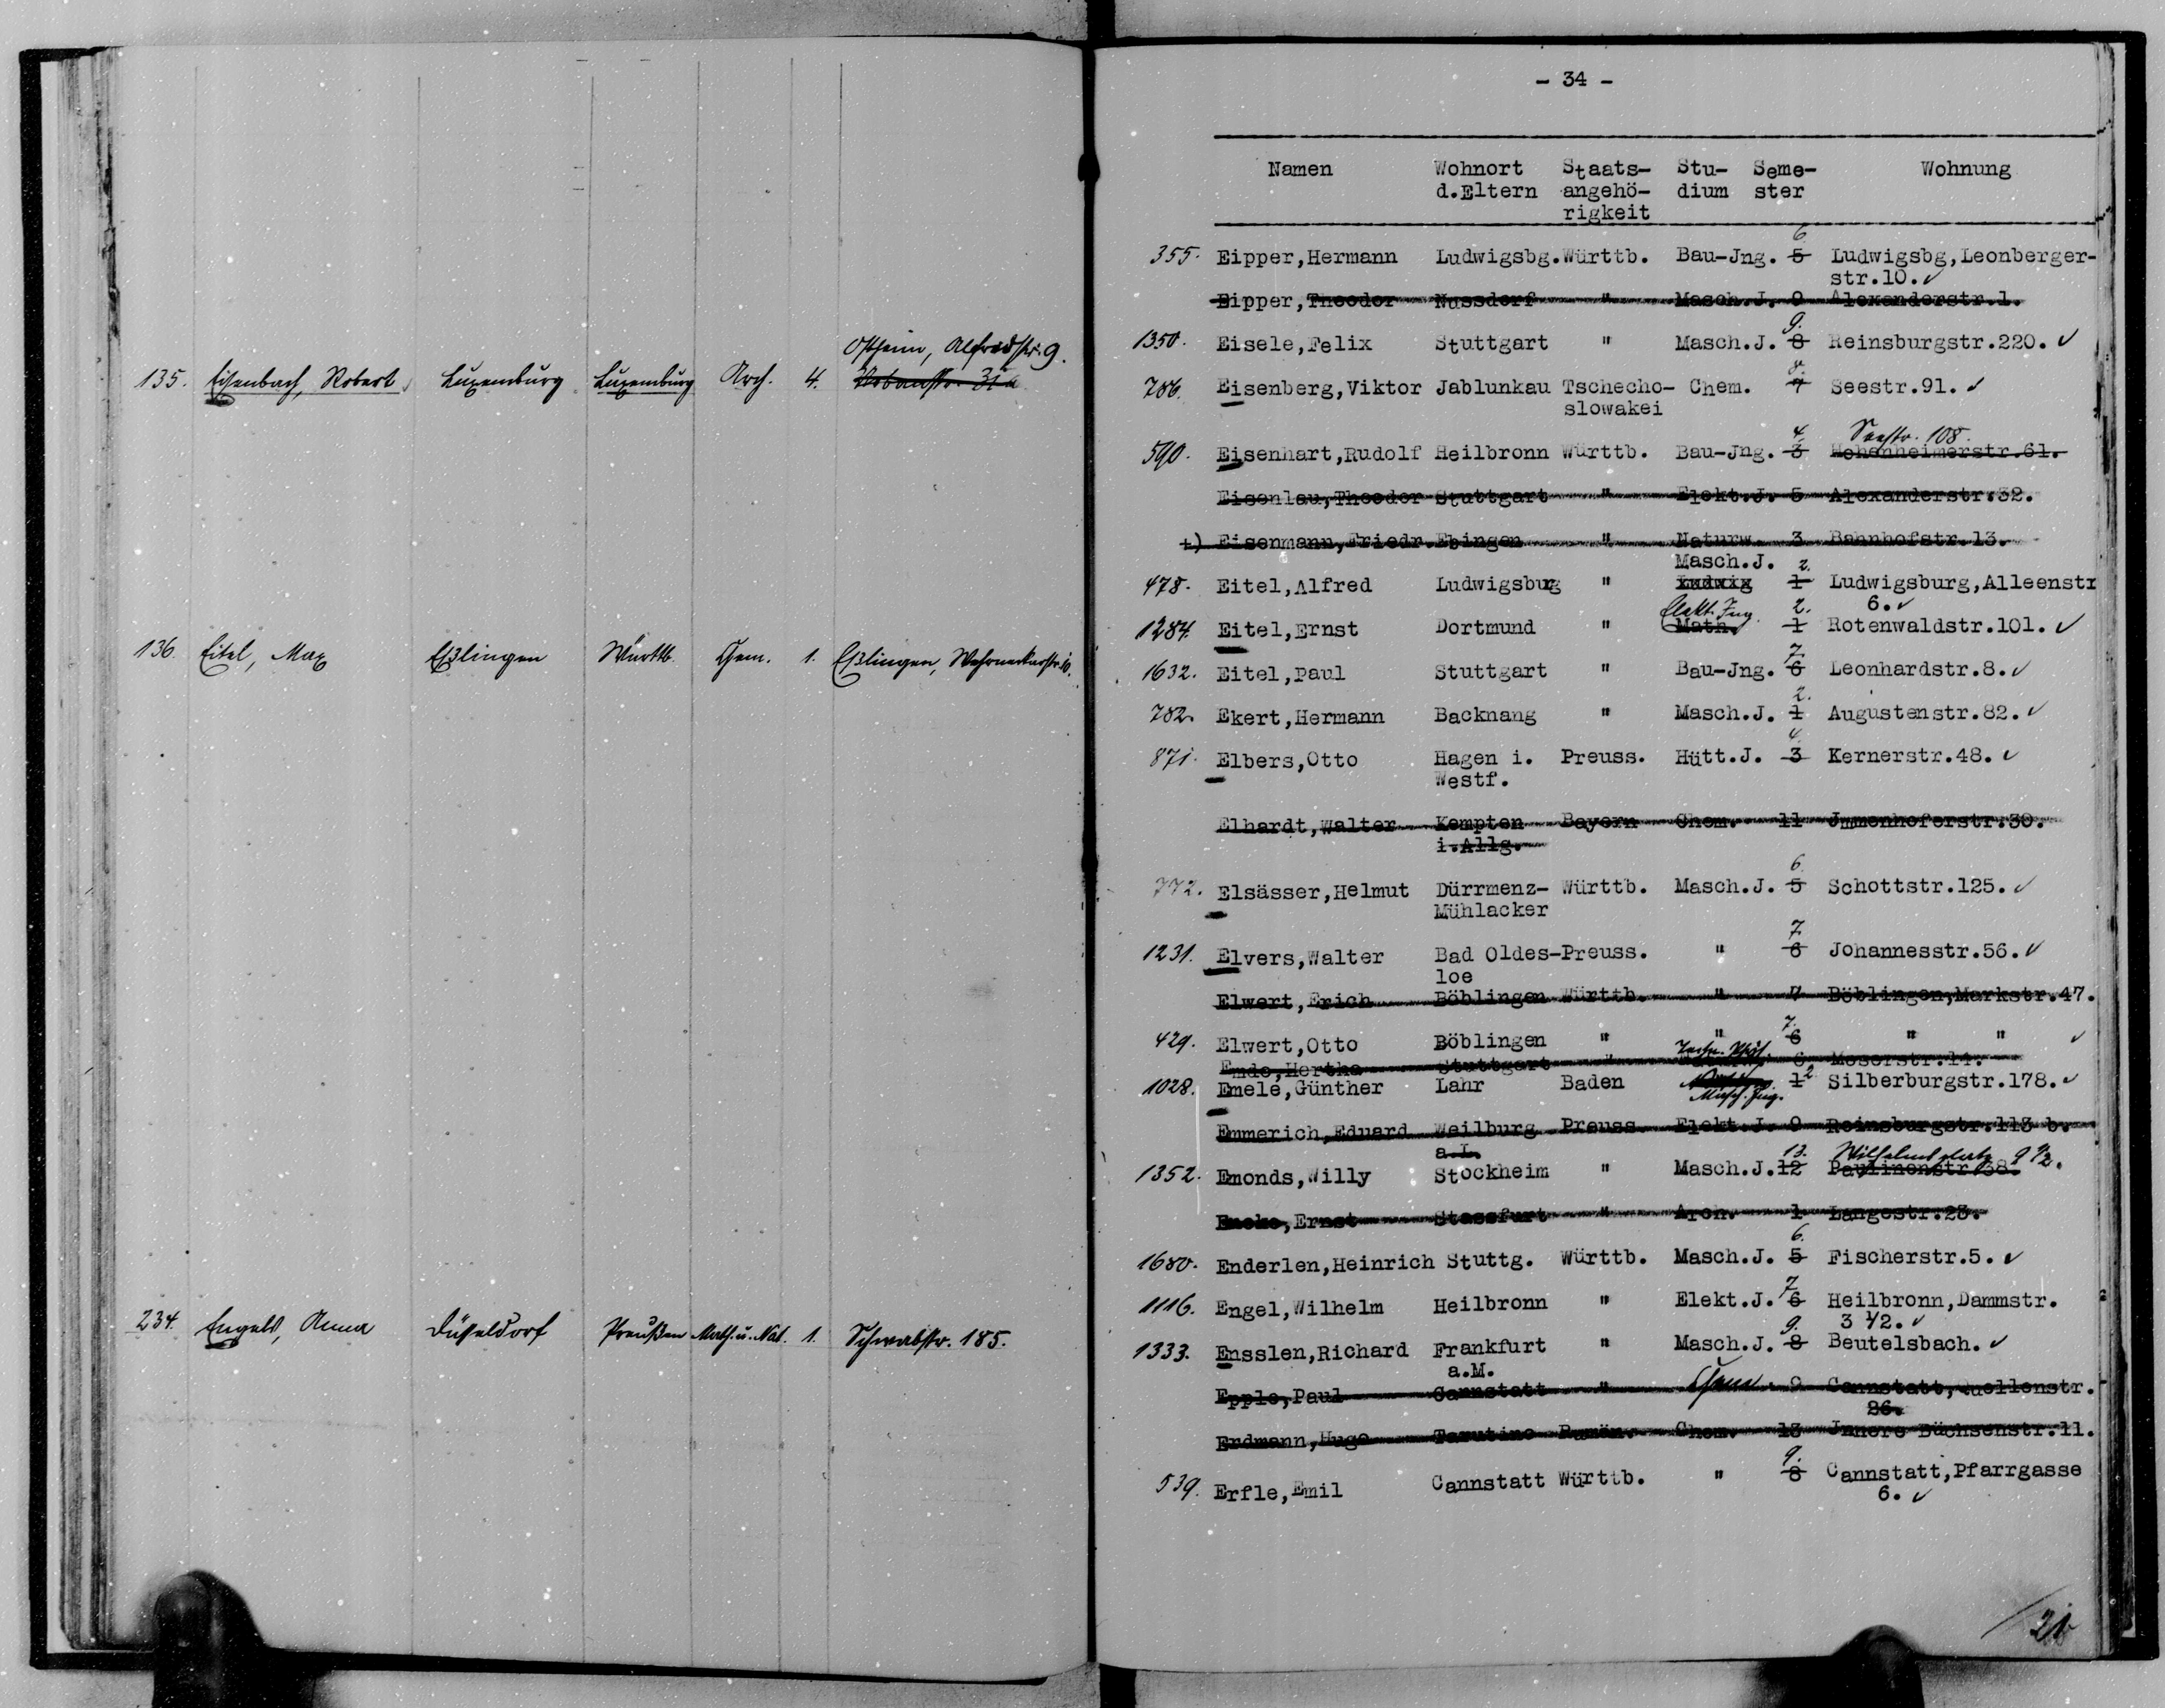 Ostheim, Alfredstr. 9.
135. Eisenbach, Robert Luxemburg Luxemburg Arch. 4. Urbanstr. 31a
136. Eitel, Max Eßlingen Württb. Chem. 1. Eßlingen,
234. Engels, Anna Düsseldorf Preußen Math. u. Nat. 1. Schwabstr. 185.
- 34 -
Namen Wohnort Staats- Stu- Seme- Wohnung
d.Eltern angehö- dium ster
rigkeit
6
355. Eipper,Hermann Ludwigsbg.Württb. Bau-Jng. 5 Ludwigsbg,Leonberger-
str.10. ✓
Eipper,Theodor Nussdorf " Masch.J. 9 Alexanderstr.1.
9.
1350. Eisele,Felix Stuttgart " Masch.J. 8 Reinsburgstr.220. ✓
8.
786. Eisenberg,Viktor Jablunkau Tschecho- Chem. 7 Seestr.91. ✓
slowakei
4. Seestr. 108.
590. Eisenhart,Rudolf Heilbronn Württb. Bau-Jng. 3 Hohenheimerstr.61.
Eisenlau,Theodor Stuttgart " Elekt.J. 5 Alexanderstr.32.
+) Eisenmann,Friedr.Ebingen " Naturw. 3 Bahnhofstr.13.
Masch.J. 2.
478. Eitel,Alfred Ludwigsburg " Ludwig 1 Ludwigsburg,Alleenstr
6. ✓
Elekt. Ing. 2.
1284. Eitel,Ernst Dortmund " Math. 1 Rotenwaldstr.101. ✓
7.
1632. Eitel,Paul Stuttgart " Bau-Jng. 6 Leonhardstr.8. ✓
2.
782. Ekert,Hermann Backnang " Masch.J. 1 Augustenstr.82. ✓
4.
871. Elbers,Otto Hagen i. Preuss. Hütt.J. 3 Kernerstr.48. ✓
Westf.
Elhardt,Walter Kempten Bayern Chem. 11 Jmmenhoferstr.30.
i.Allg.
6
772. Elsässer,Helmut Dürrmenz- Württb. Masch.J. 5 Schottstr.125. ✓
Mühlacker
7.
1231. Elvers,Walter Bad Oldes-Preuss. " 6 Johannesstr.56. ✓
loe
Elwert,Erich Böblingen Württb. " 7 Böblingen,Markstr.47.
7.
429. Elwert,Otto Böblingen " " 6 " " ✓
Emde,Hertha Stuttgart " 6 Moserstr.14.
1028. Emele,Günther Lahr Baden 1 2 Silberburgstr.178. ✓
Masch. Ing.
Emmerich,Eduard Weilburg Preuss. Elekt.J. 9 Reinsburgstr.113 b.
a.L. 13. Wilhelmsplatz 9 1/2.
1352. Emonds,Willy Stockheim " Masch.J.12 Paulinenstr.38.
Encke,Ernst Stassfurt " Arch. 1 Langestr.23.
6.
1680. Enderlen,Heinrich Stuttg. Württb. Masch.J. 5 Fischerstr.5. ✓
7
1116. Engel,Wilhelm Heilbronn " Elekt.J. 6 Heilbronn,Dammstr.
3 1/2. ✓
9.
1333. Ensslen,Richard Frankfurt " Masch.J. 8 Beutelsbach. ✓
a.M.
Epple,Paul Cannstatt " Chem. 9 Cannstatt,Quellenstr.
26.
Erdmann,Hugo Tarutino Rumän. Chem. 13 Jnnere Büchsenstr.11.
9.
539. Erfle,Emil Cannstatt Württb. " 8 Cannstatt,Pfarrgasse
6. ✓